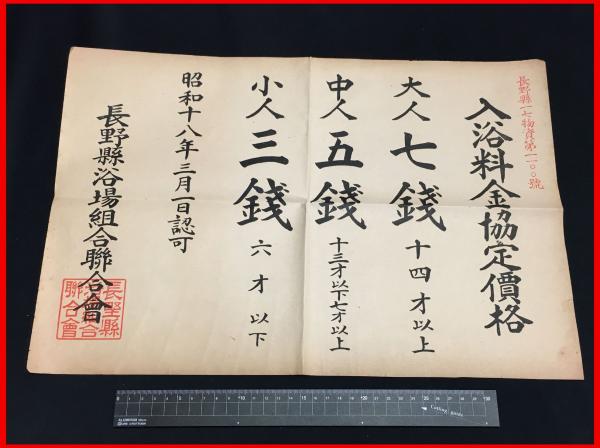 長野縣一七物資第一一〇〇號
入浴料金協定價格
大人 七錢 十四才以上
中人 五錢 十三才以下七才以上
小人 三錢 六才以下
昭和十八年三月一日認可
長野縣浴場組合聯合會
Cutting guide